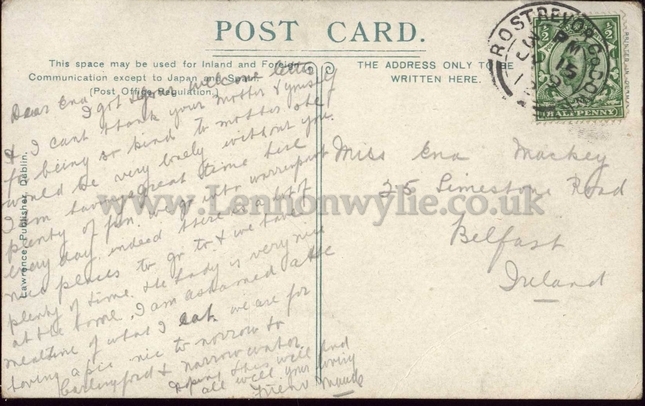 POST CARD.
This space may be used for Inland and Foreign
Communication except to Japan and Spain.
(Post Office Regulation.)
THE ADDRESS ONLY TO BE
WRITTEN HERE.
ROSTREVOR CO. DOWN
PM
15
HALFPENNY
Lawrence, Publisher, Dublin.
Dear Ena I got your welcome letter
& I cant thank your mother & yourself
for being so kind to mother she
would be very lonely without you.
I am having a great time here
plenty of fun. we go into warrenpoint
every day. indeed there is a lot of
nice places to go to & we have
plenty of time. the lady is very nice
at the home, I am ashamed at the
mealtime of what I eat. we are for
having a pic nic to morrow to
Carlingford & narrow water
hoping this well find
all well your loving
friend Maude
Miss Ena Mackey
25 Limestone Road
Belfast
Ireland
www.Lennonwylie.co.uk